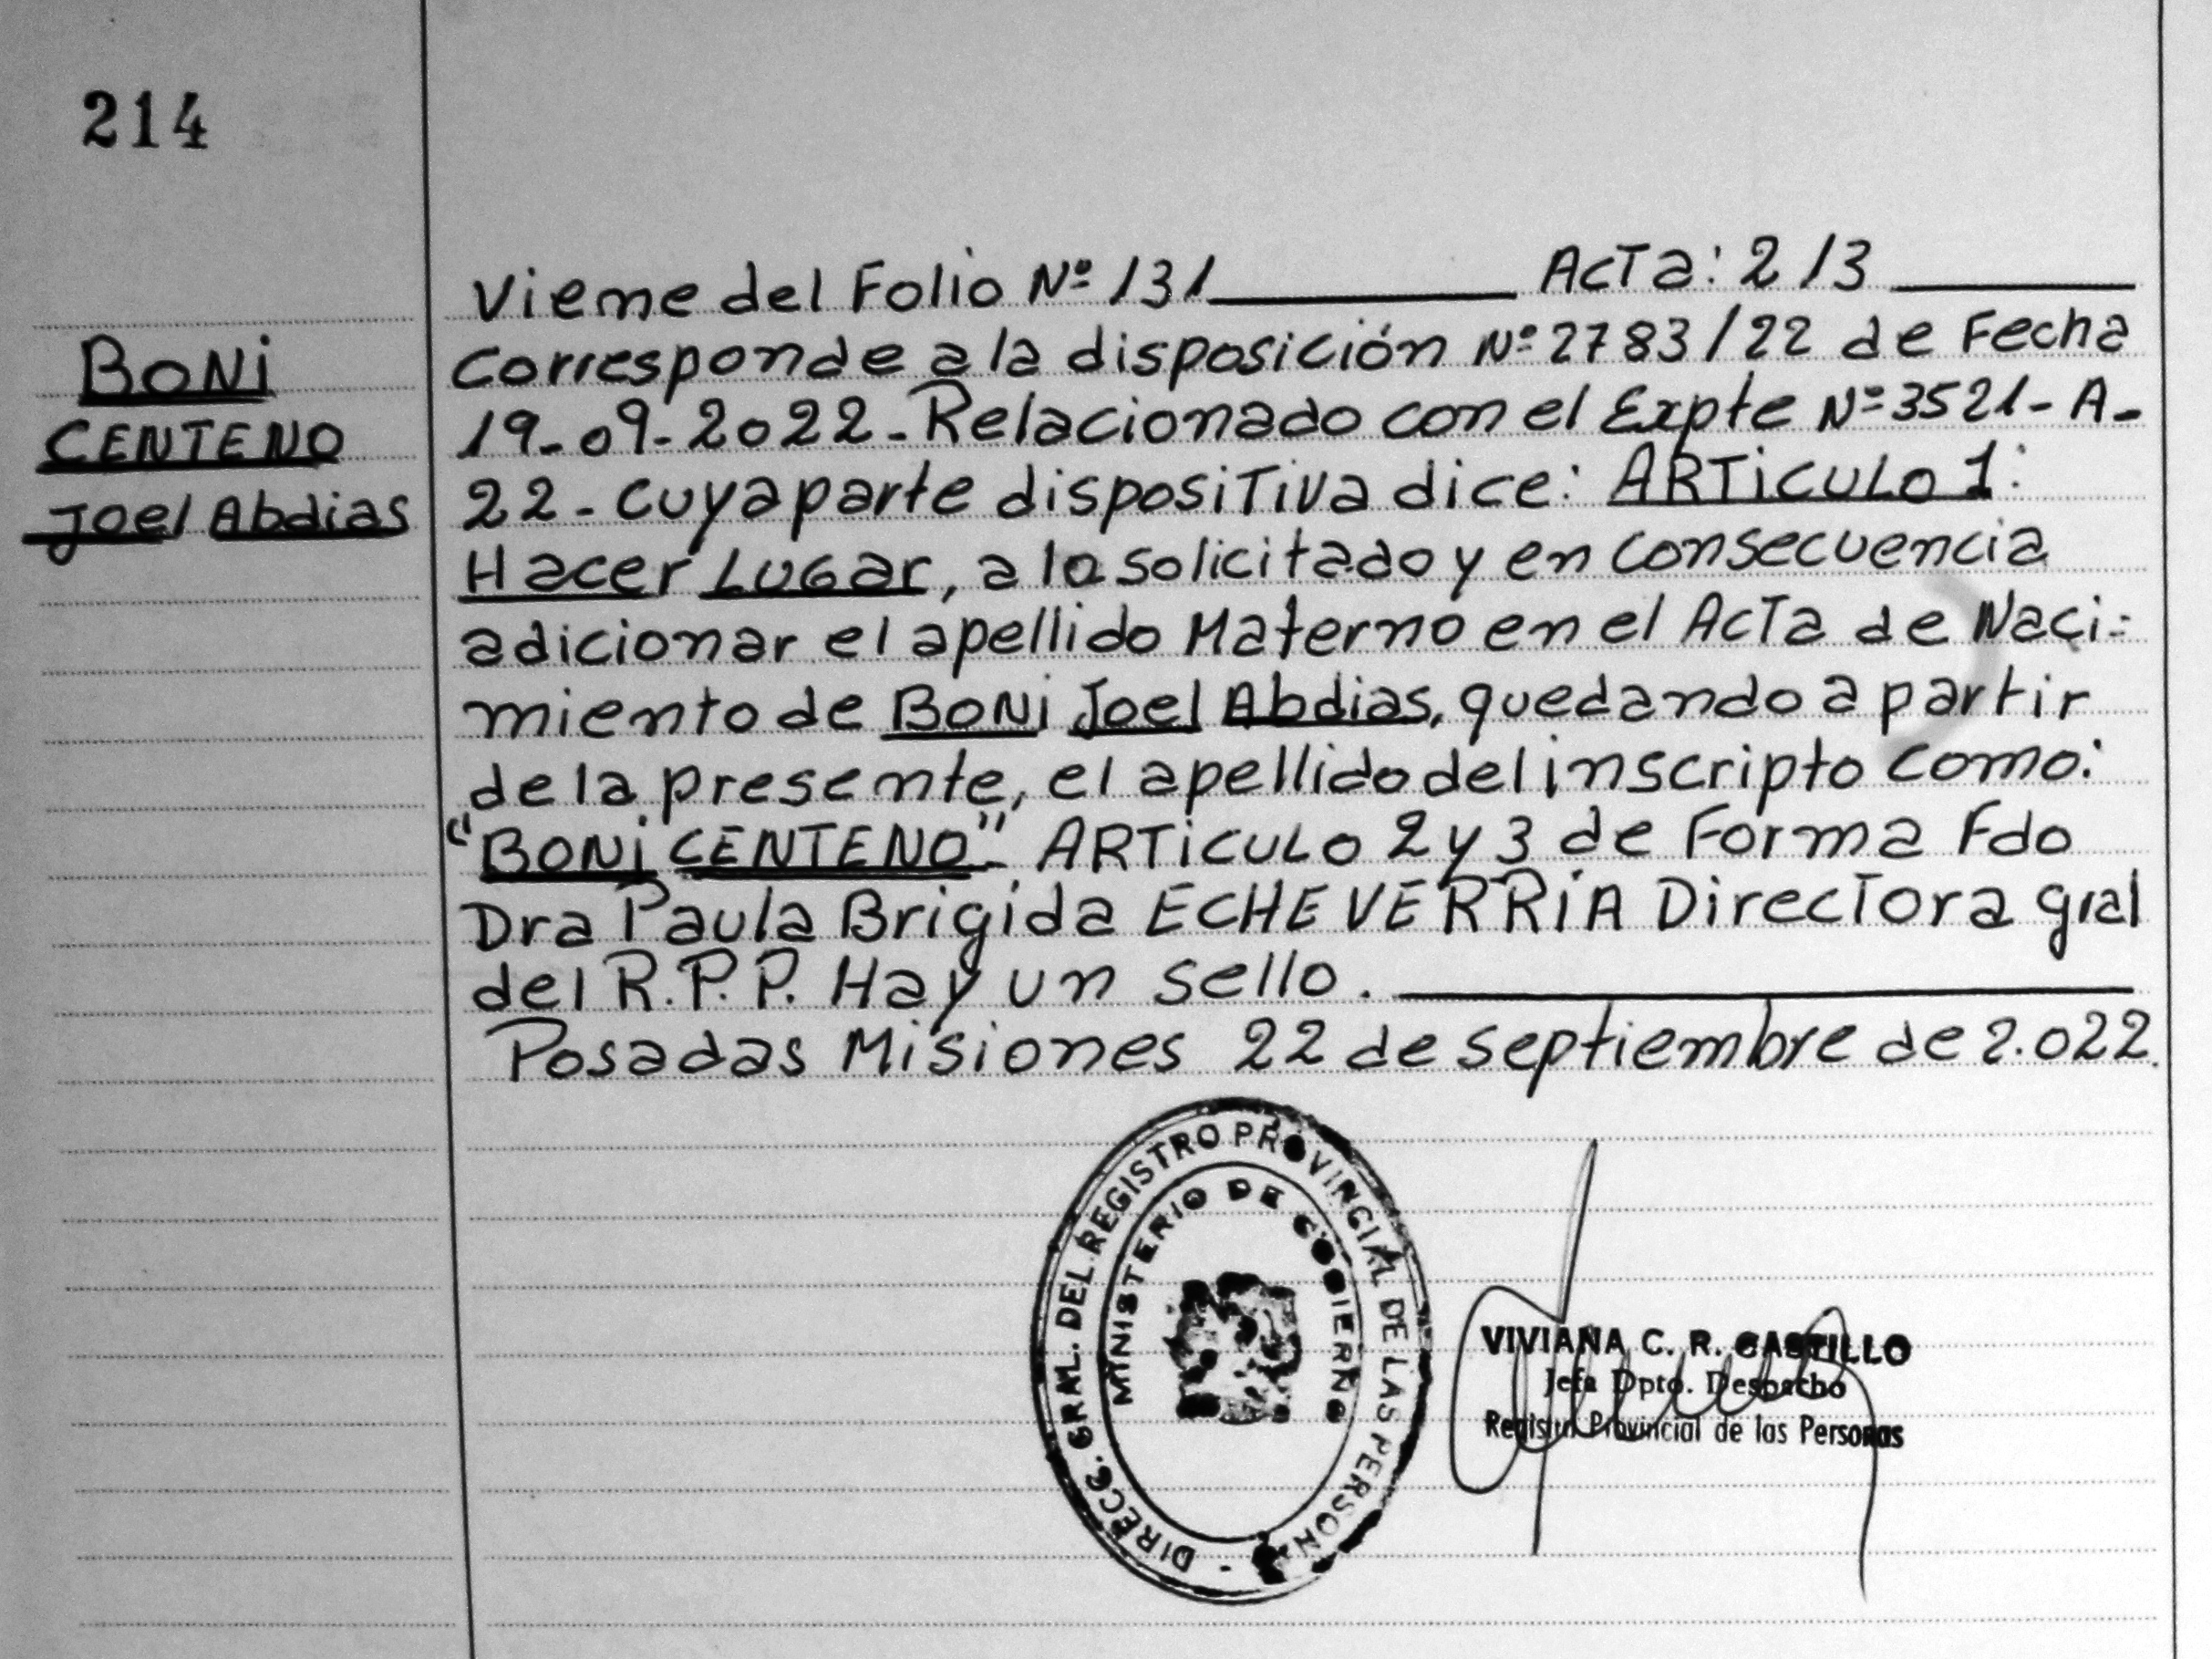 214
BONi
CENTENO
Joel Abdias
Viene del Folio Nº 131 Acta: 213
Corresponde a la disposición Nº 2783/22 de Fecha
19-09-2022- Relacionado con el Expte Nº 3521- A-
22- cuya parte dispositiva dice: ARTiCULO 1:
Hacer LUGar, a lo solicitado y en consecuencia
adicionar el apellido Materno en el Acta de Naci-
miento de BONi Joel Abdias, quedando a partir
de la presente, el apellido del inscripto como:
"BONi CENTENO". ARTiCULO 2 y 3 de Forma Fdo
Dra Paula Brigida ECHEVERRiA Directora gral
del R.P.P. Hay un sello.
Posadas Misiones 22 de septiembre de 2.022.
DIRECC. GRAL. DEL REGISTRO PROVINCIAL DE LAS PERSONAS
MINISTERIO DE GOBIERNO
VIVIANA C. R. CASTILLO
Jefa Dpto. Despacho
Registro Provincial de las Personas